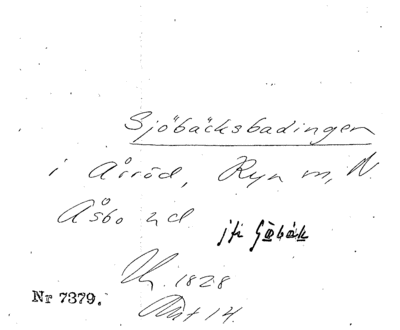 Sjöbäcksbadingen
i Årröd, Ryn m, N.
Åsbo hd.
jfr Sjöbäck
Nr 7379.
1828
14.